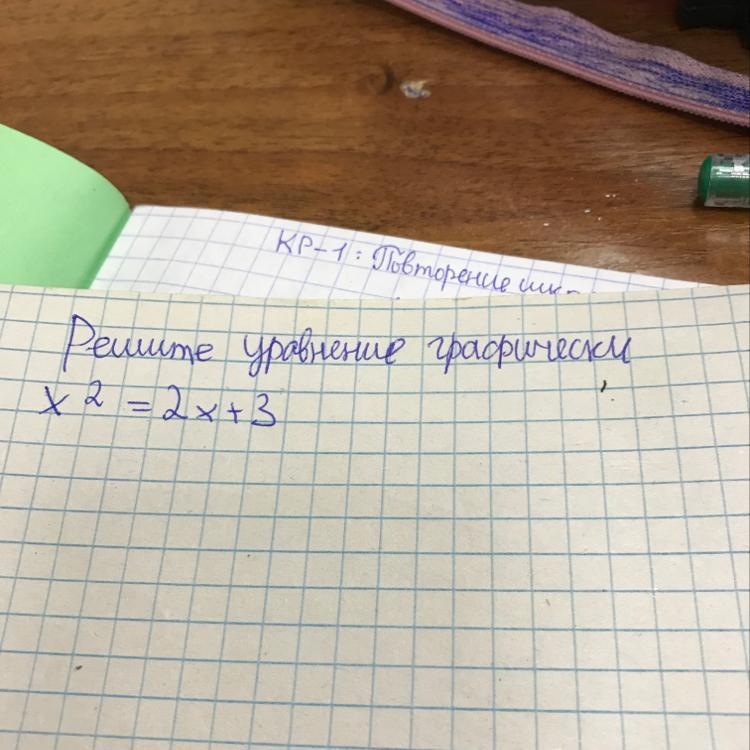 КР-1: Повторение
Решите уравнение графически
x² = 2x+3